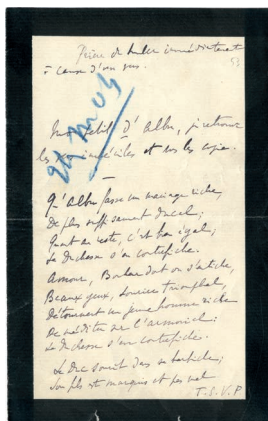 Prière de brûler immédiatement
à cause d'un gus.
53
Mon petit d'Albu, je retrouve
les vers imbéciles et vous les copie.
Qu'Albu fasse un mariage riche,
De plus suffisamment ducal;
Quant au reste, c'est bien égal,
La duchesse s'en contrefiche.
Amour, dont on s'entiche,
Beaux yeux, sourire triomphal,
Détournent un jeune homme riche
De méditer sur l'armorial;
La duchesse s'en contrefiche.
Le Duc sourit dans sa barbiche;
Son fils est marquis et pas mal
T.S.V.P